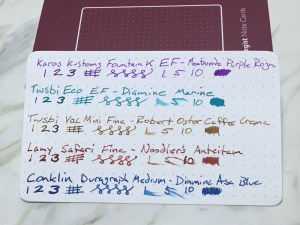 Note Cards
Karas Kustoms Fountain K EF - Monteverde Purple Reign
1 2 3 L 5 10
Twsbi Eco EF - Diamine Marine
1 2 3 L 5 10
Twsbi Vac Mini Fine - Robert Oster Caffe Crema
1 2 3 L 5 10
Lamy Safari Fine - Noodler's Antietam
1 2 3 L 5 10
Conklin Duragraph Medium - Diamine Asa Blue
1 2 3 L 5 10